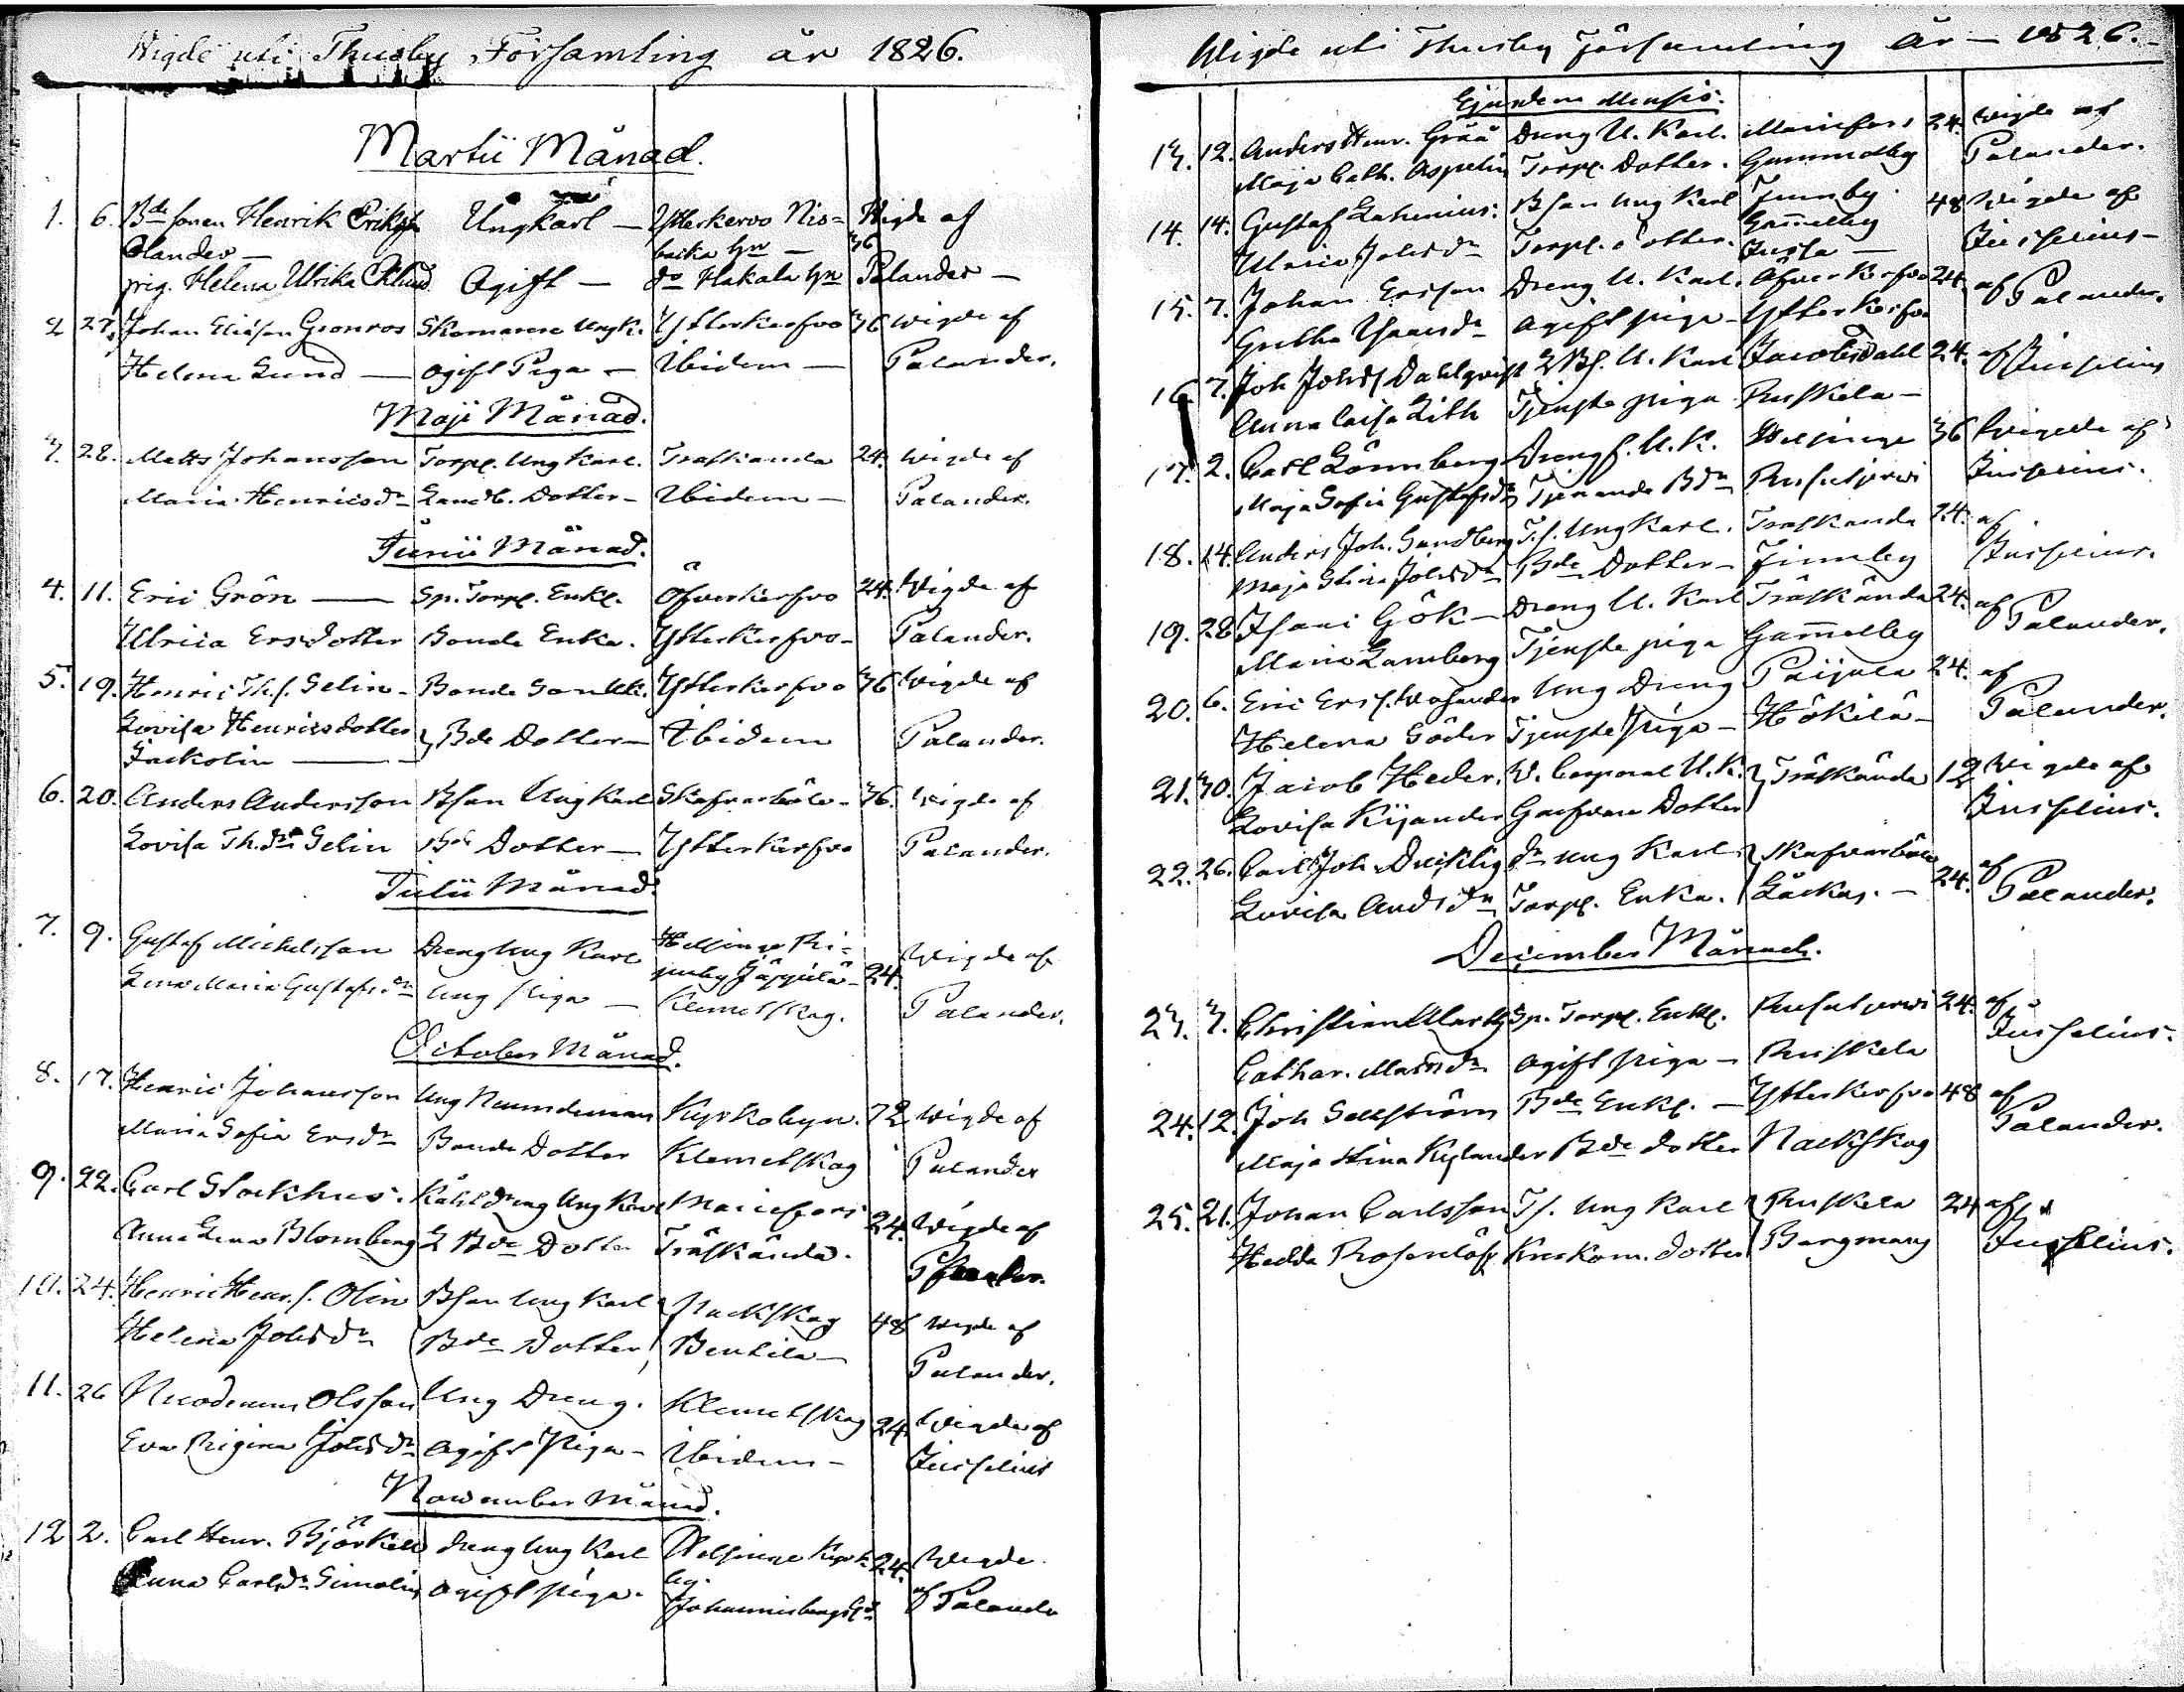 Wigde uti Thusby Församling år 1826.
Martii Månad.
1. 6. Bde sonen Henrik Eriksson Ungkarl — Ytterkervo Nis=
Olander — backa hn — 36 Wigde af
pig. Helena Ulrika Eklund Ogift — do Hakala hn Palander —
2 27. Johan Eliasson Gronroos Skomakare Ungk. Ytterkerfvo 36 wigde af
Helena Lund — ogift Piga — Ibidem — Palander.
Maji Månad.
3. 28. Matts Johansson Torp. Ung Karl. Traskanda 24. wigde af
Maria Henricsdr Landb. Dotter — Ibidem — Palander.
Junii Månad.
4. 11. Eric Grön — Sp. Torp. Enkl. Öfverkerfvo 24. Wigde af
Ulrica Ersdotter Bonde Enka. Ytterkerfvo — Palander.
5. 19. Henric Th.s. Gelin — Bonde Son Ytterkerfvo 36 Wigde af
Lovisa Henricsdotter Bde Dotter — Ibidem Palander.
Jackolin —
6. 20. Anders Andersson Bson Ung Karl Skafvarböle — 36. Wigde af
Lovisa Th.dr Gelin Bde Dotter — Ytterkerfvo Palander.
Julii Månad.
7. 9. Gustaf Michelsson Dreng Ung Karl Helsinge 24. Wigde af
Lena Maria Gustafsdr Ung piga — Klemetskog. Palander.
October Månad.
8. 17. Henric Johansson Ung Nämndeman Kyrkobyn. 72 wigde af
Maria Sofia Ersdr Bonde Dotter Klemetskog Palander
9. 22. Carl Stockhus. Ung Karl Mariefors 24. Wigde af
Anna Lena Blomberg Bde Dotter Träskända. Palander.
10. 24. Henric Henr.s. Olin Bson Ung Karl Nackskog 48 wigde af
Helena Johsdr Bde Dotter Bentila — Palander.
11. 26 Nicodemus Olsson Ung Dreng. Klemetskog 24. Wigde af
Eva Regina Johsdr Ogift Piga — Ibidem — Juselius
November Månad.
12 2. Carl Henr. Björkell dreng Ung Karl Helsinge Kyrk= 24. Wigde
by.
Anna Carlsdr Simolin ogift piga. Johannisberg af Palander
Wigde uti Thusby Församling år — 1826. —
Ejusdem Mensis.
13. 12. Anders Henr. Grää Dreng U. Karl. Mariefors 24. wigde af
Maja Cath. Aspelin Torp. Dotter. Gammelby Palander.
14. 14. Gustaf Bson Ung Karl Finnby 48 Wigde af
Ulrica Johsdr Torp. dotter. Gamelby Juselius —
15. 7. Johan Ersson Dreng U. Karl. Öfverkerfvo 24. af Palander.
Gretha ogift piga — Ytterkerfvo
16. 7. Joh Johss Dahlqvist U. Karl Jacobsdahl 24. af Juselius
Anna Caisa Lith Tjenste piga Ruskela —
17. 2. Carl Lönnberg Drengs. U. K. Helsinge 36 Wigde af
Maja Sofia Gustafsdr Tjenande Bdr Rusutjerwi Juselius.
18. 14. Anders Joh. Sundberg T.s. Ung Karl. Traskanda 24. af
Maja Stina Johsdr Bde Dotter — Finnby Juselius.
19. 28 Isaac Gök — Dreng U. Karl Träskända 24. af
Maria Lamberg Tjenste piga Gamelby Palander.
20. 6. Eric Ers.s. Ung Dreng Paijala 24. af
Helena Söder Tjenste piga — Hökilä — Palander.
21. 30. Jacob Heder. V. Corporal U. K. Träskända 12 Wigde af
Lovisa Kijander Garfvare Dotter Juselius.
22. 26. Carl Joh Ducktig dr Ung Karl Skafvarböle 24. af
Lovisa Andsdr Torp. Enka. Läckas. — Palander.
December Månad.
23. 3. Christian Sp. Torp. Enkl. Rusutjerwi 24. af
Cathar. Matsdr ogift piga — Ruskela Juselius.
24. 12. Joh Sellström Bde Enkl. — Ytterkerfvo 48 af
Maja Stina Kylander Bde dotter Nackskog Palander.
25. 21. Johan Carlsson Ts. Ung Karl Ruskela 24 af
Hedda Rosenlöf dotter Bergmans Juselius.